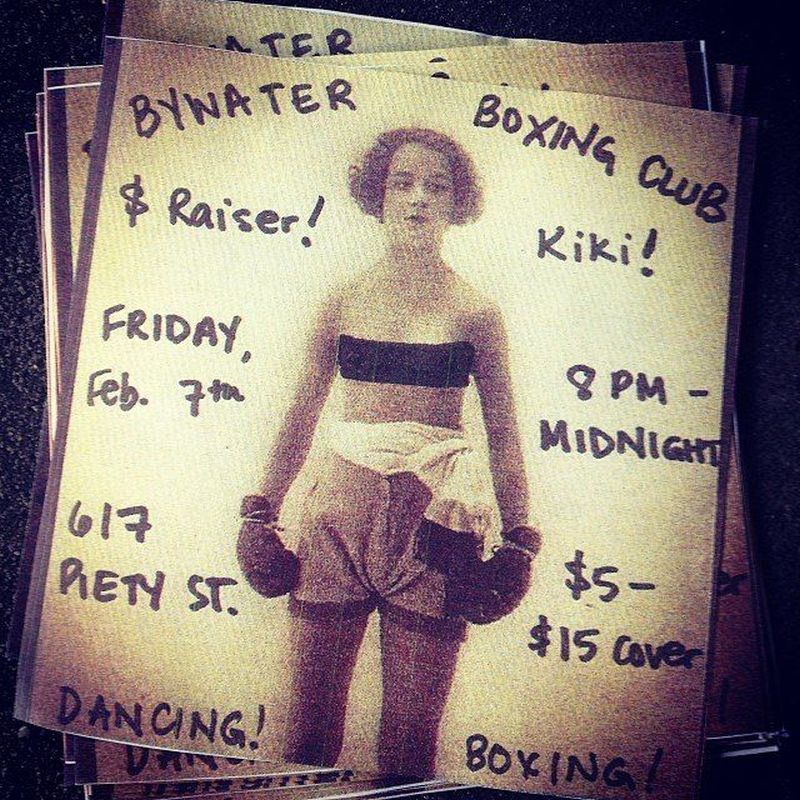 BYWATER BOXING CLUB
$ Raiser! Kiki!
FRIDAY,
Feb. 7th
8 PM -
MIDNIGHT
617
PIETY ST.
$5-
$15 cover
DANCING! BOXING!